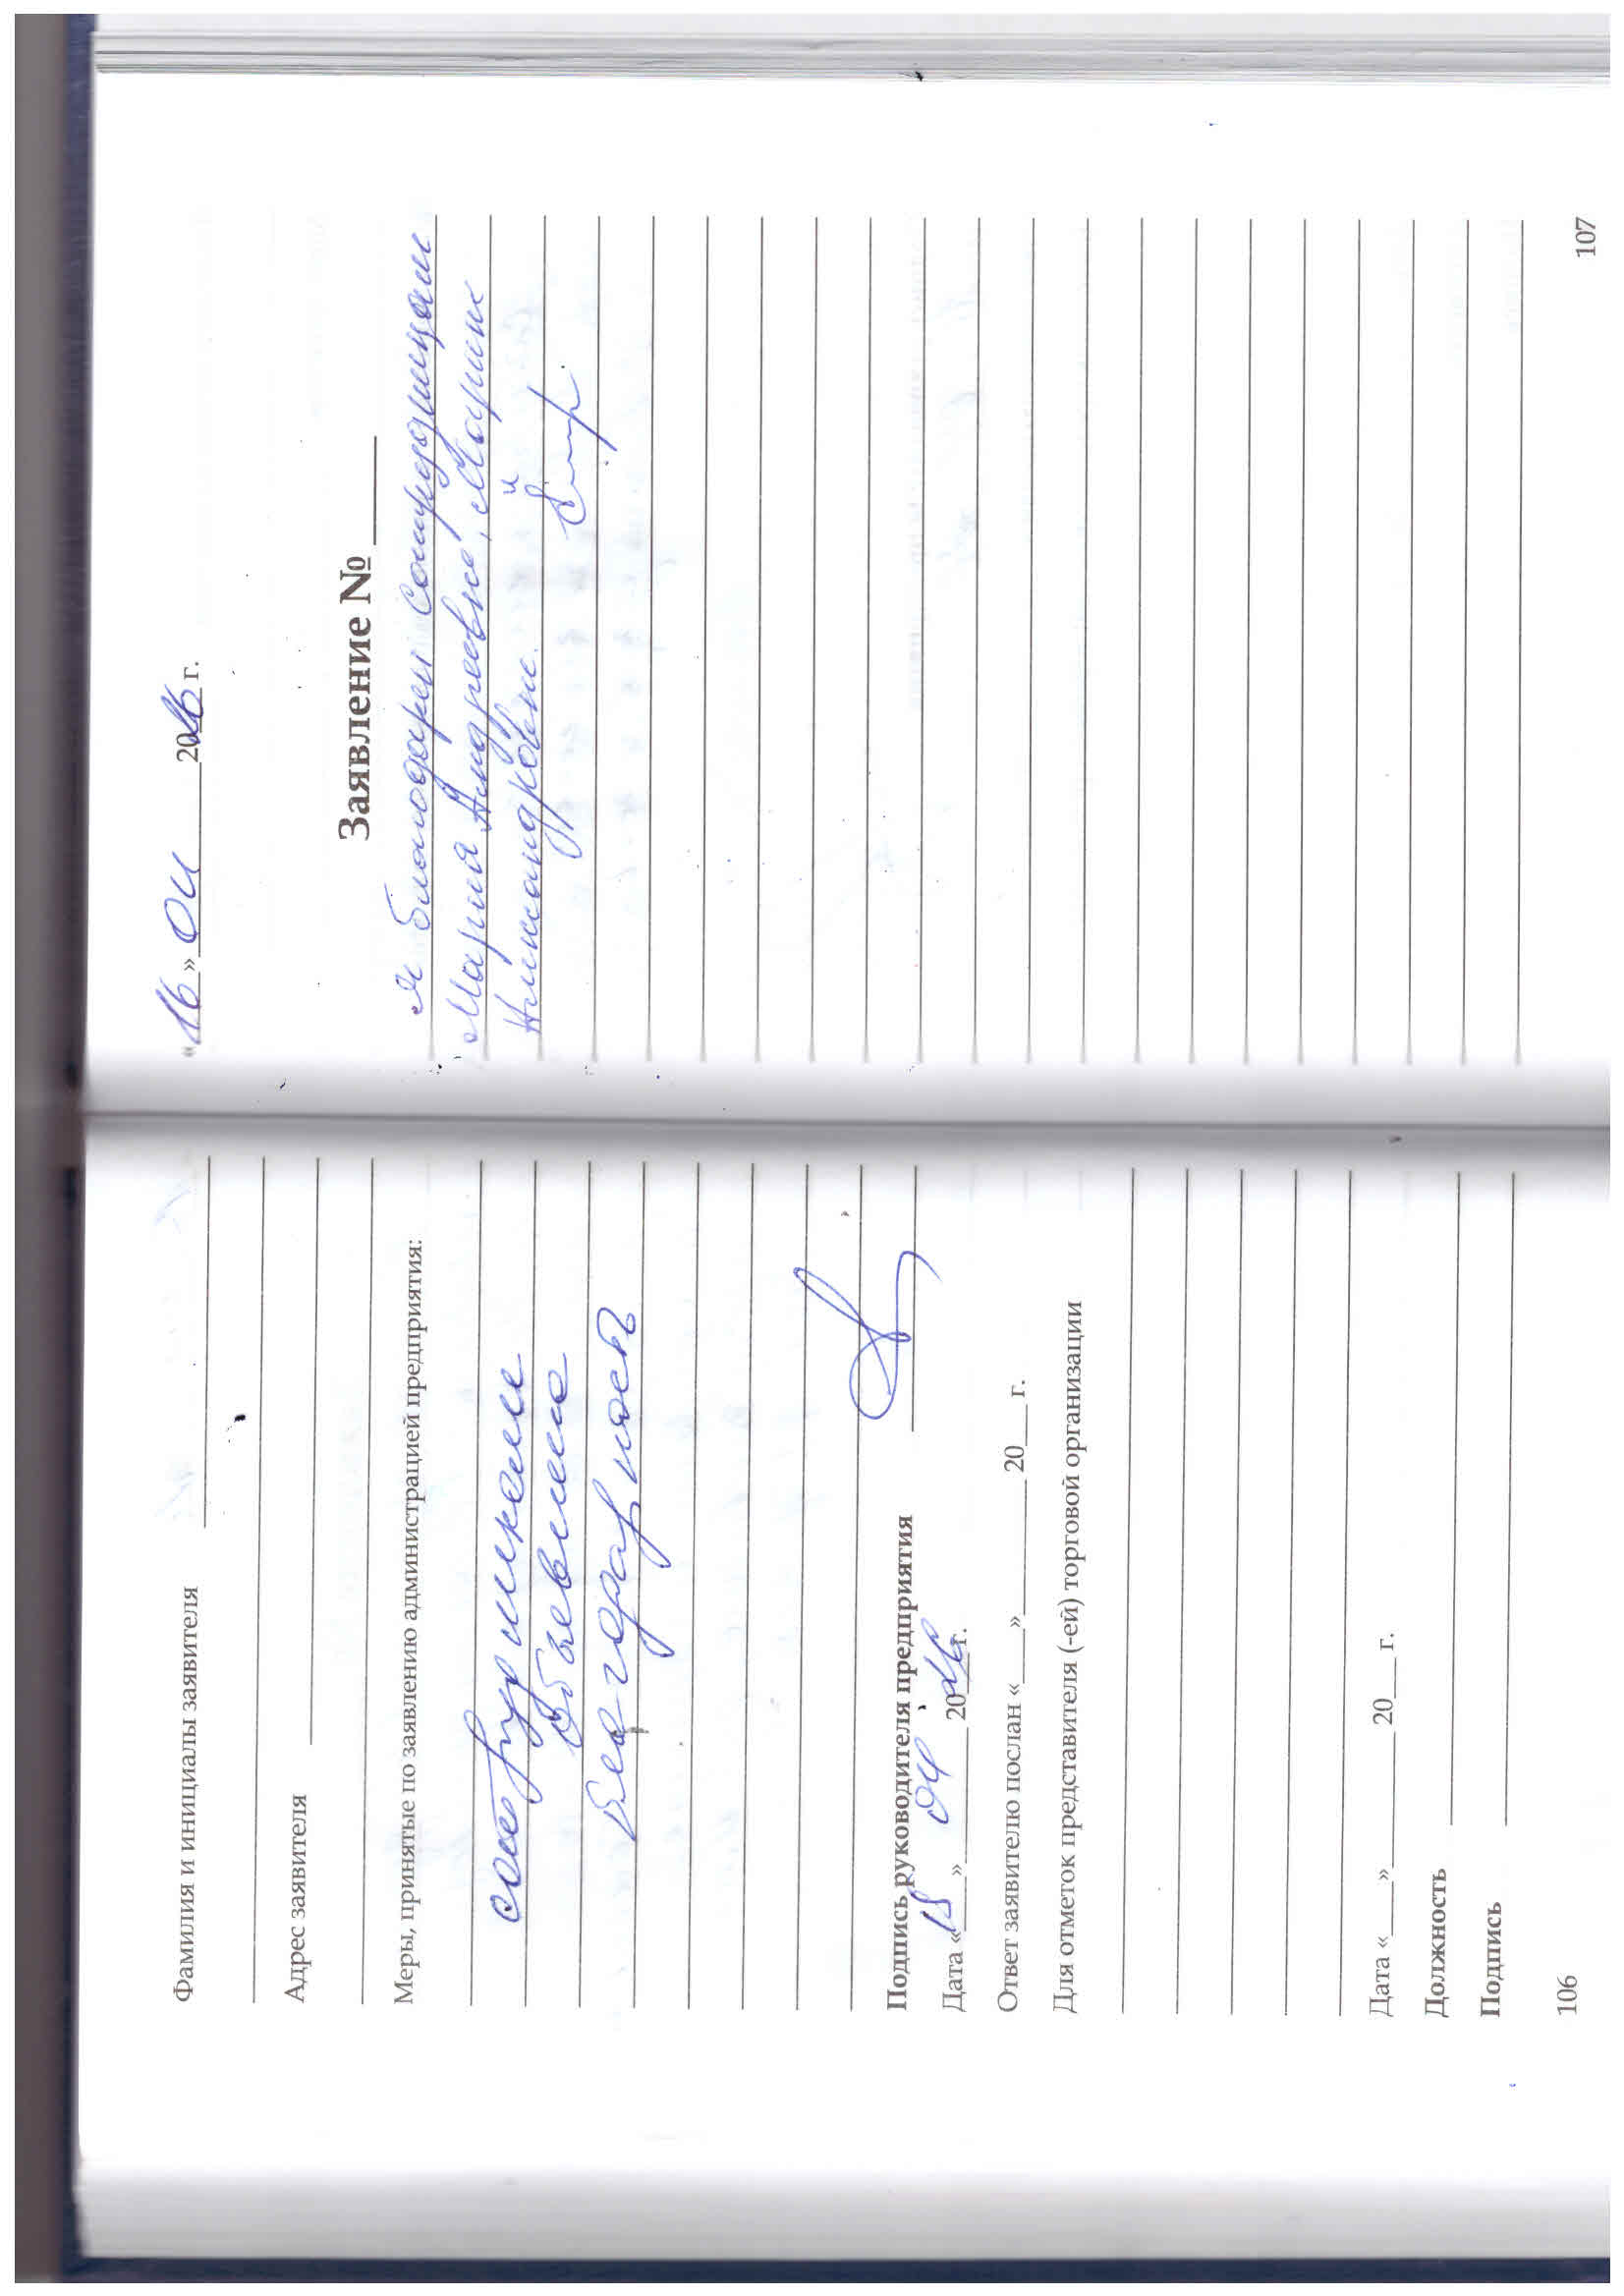 Фамилия и инициалы заявителя
Адрес заявителя
Меры, принятые по заявлению администрацией предприятия:
сотрудникам
объявлена
благодарность
Подпись руководителя предприятия
Дата «15» 04 2016г.
Ответ заявителю послан «___»________ 20___г.
Для отметок представителя (-ей) торговой организации
Дата «____»________ 20___г.
Должность
Подпись
106
«16» 04 2016г.
Заявление № ____
Я благодарен сотрудницам
Мария Андреевне, Марине
Александровне.
107